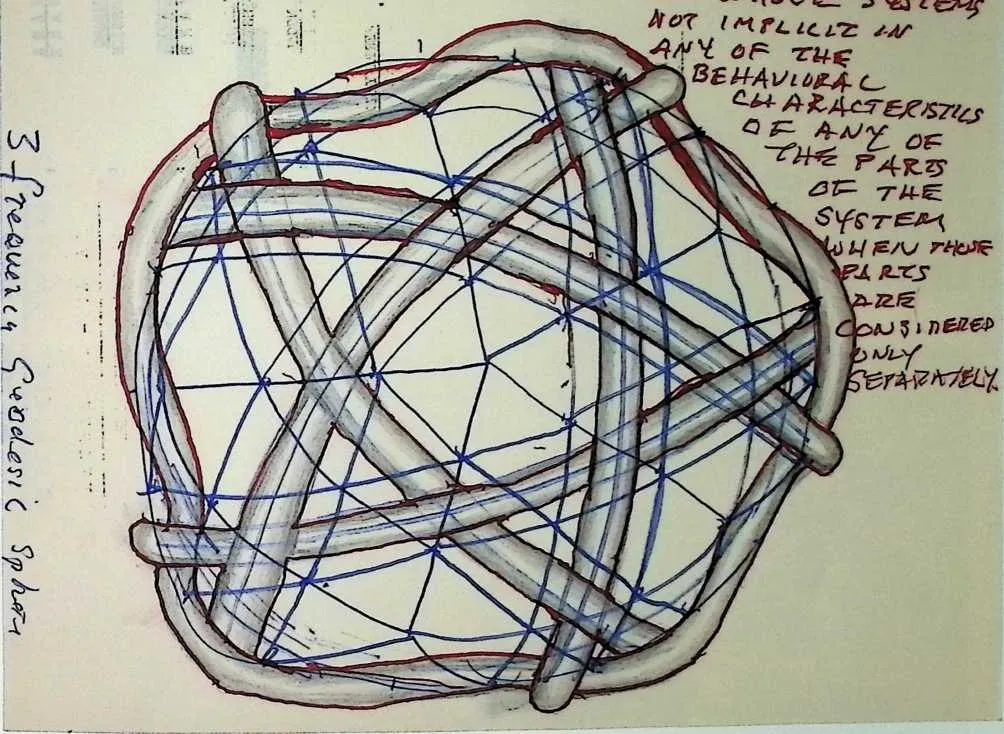 SYSTEMS
NOT IMPLICIT IN
ANY OF THE
BEHAVIORAL
CHARACTERISTICS
OF ANY OF
THE PARTS
OF THE
SYSTEM
WHEN THOSE
PARTS
ARE
CONSIDERED
ONLY
SEPARATELY.
3 frequency Geodesic Sphere